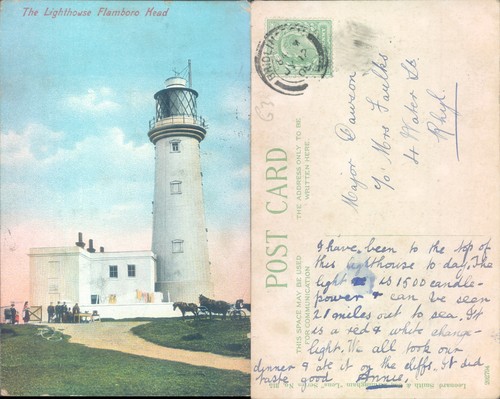 The Lighthouse Flamboro Head
BRIDLIN
POST CARD
THE ADDRESS ONLY TO BE
WRITTEN HERE
THIS SPACE MAY BE USED
FOR COMMUNICATION
Major Dawson
c/o Mrs Faulks
4 Water St.
Rhyl.
I have been to the top of
this lighthouse to day. The
light is 1500 candle-
power & can be seen
21 miles out to sea. It
is a red & white change-
light. We all took our
dinner & ate it on the cliffs. It did
taste good Annie.